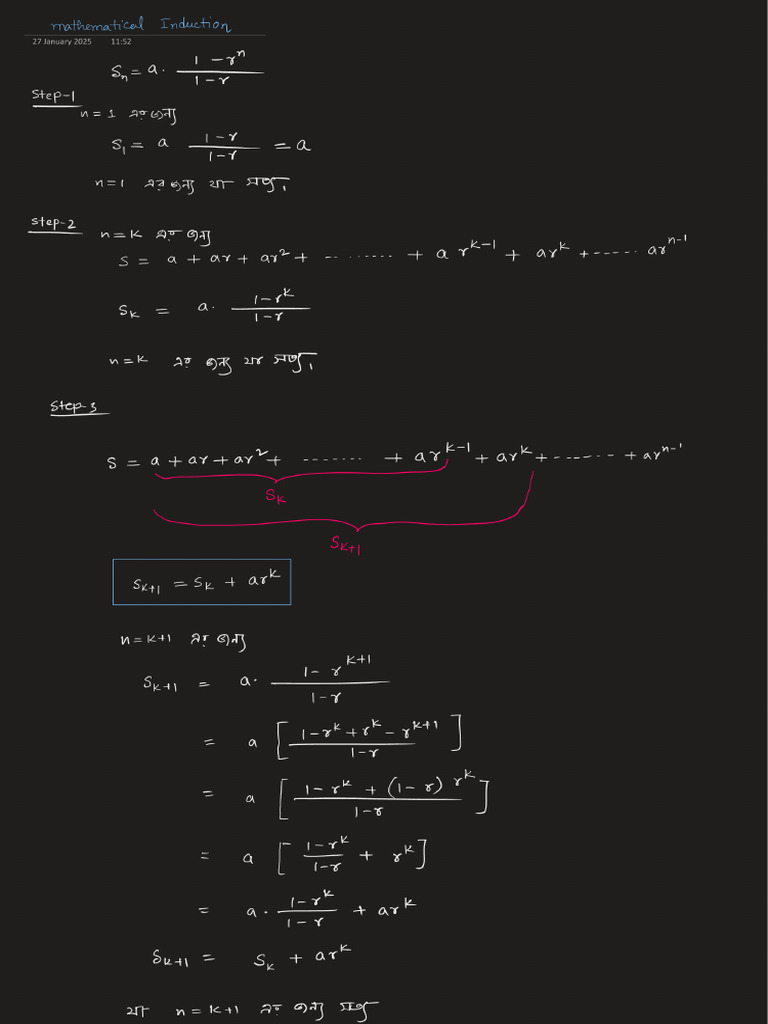 mathematical Induction
27 January 2025 11:52
Sₙ = a · (1 - rⁿ)/(1 - r)
Step-1
n = 1 এর জন্য
S₁ = a (1 - r)/(1 - r) = a
n = 1 এর জন্য যা সত্য।
Step-2
n = k এর জন্য
S = a + ar + ar² + ......... + a r^(k-1) + ar^k + ...... ar^(n-1)
S_k = a · (1 - r^k)/(1 - r)
n = k এর জন্য যার সত্য।
Step-3
S = a + ar + ar² + ........ + ar^(k-1) + ar^k + ....... + ar^(n-1)
S_k
S_(k+1)
S_(k+1) = S_k + ar^k
n = k+1 এর জন্য
S_(k+1) = a · (1 - r^(k+1))/(1 - r)
= a [(1 - r^k + r^k - r^(k+1))/(1 - r)]
= a [(1 - r^k + (1 - r) r^k)/(1 - r)]
= a [(1 - r^k)/(1 - r) + r^k]
= a · (1 - r^k)/(1 - r) + ar^k
S_(k+1) = S_k + ar^k
যা n = k+1 এর জন্য সত্য